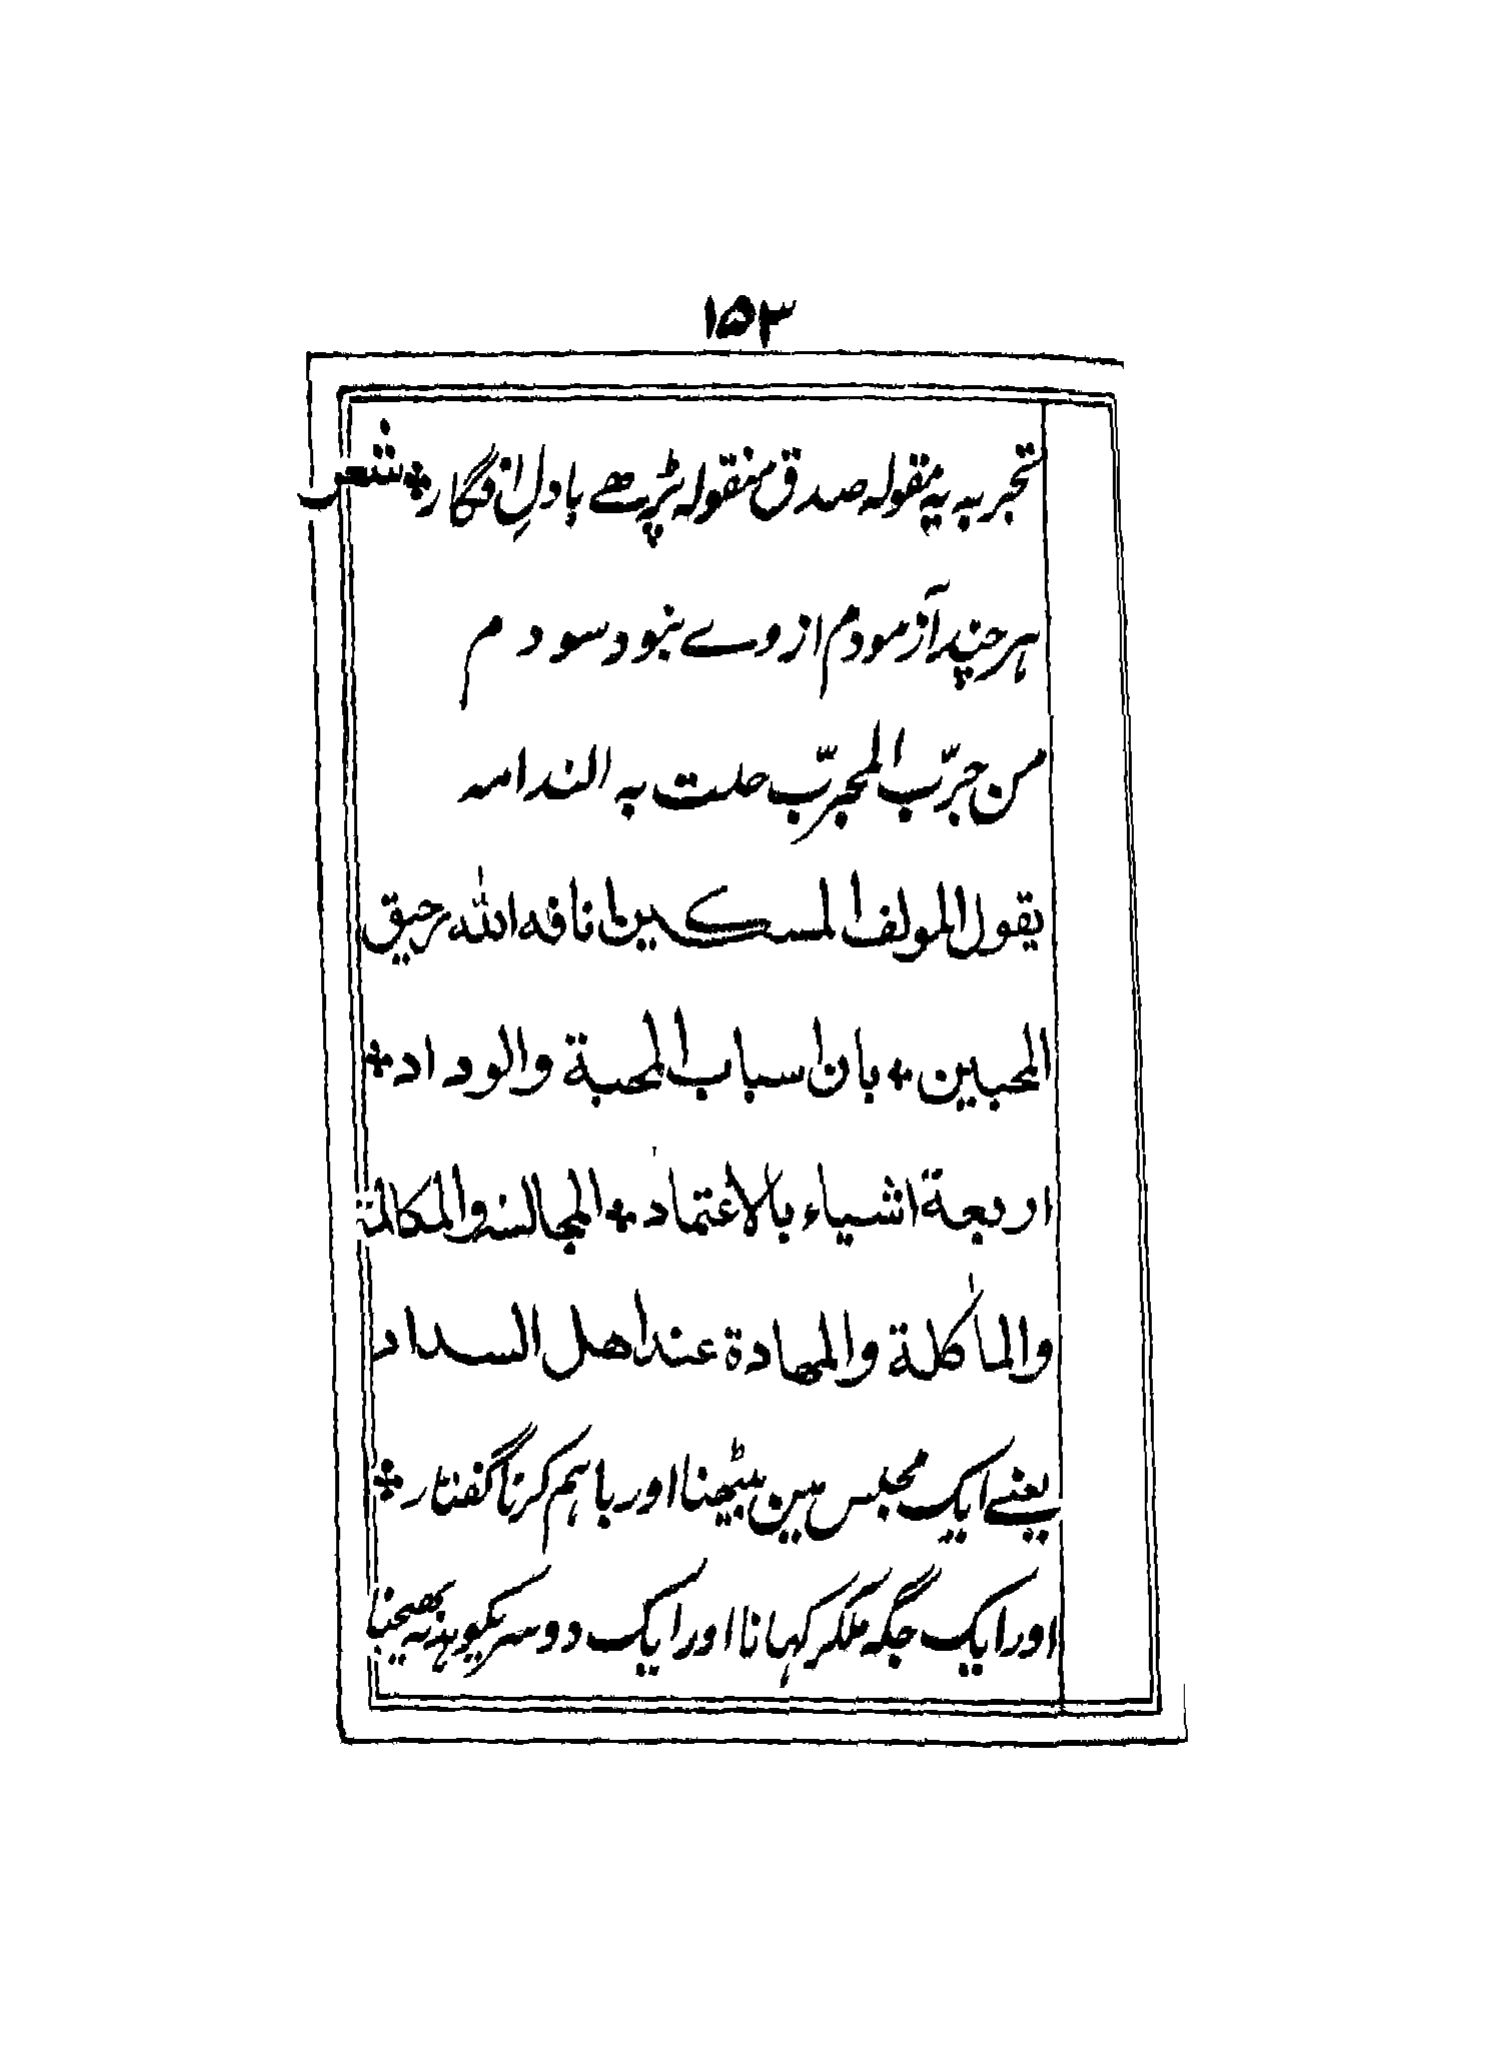 ۱۵۳
تجربہ یہ مقولہ صدق منقولہ پڑھے بادلِ افگار ٭ شعر
ہر چند آزمودم از وے نبود سودم
من جرّب المجرّب حلت بہ الندامہ
يقول المولف المسكين اذاقه الله رحيق
المحبين ٭ بان اسباب المحبة والوداد ٭
اربعة اشياء بالاعتماد ٭ المجالسة والمكالمة
والماكلة والمهادة عند اهل السداد
یعنے ایک مجلس مین بیٹھنا اور باہم کرنا گفتار ٭
اور ایک جگہ ملکر کہانا اور ایک دوسریکو ہدیہ بھیجنا